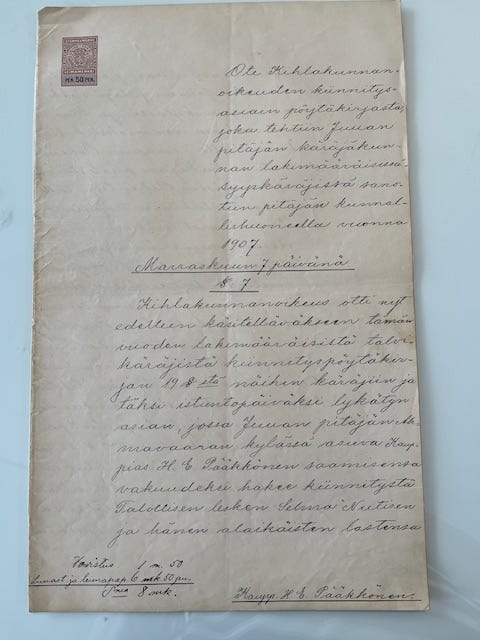 STÄMPELMÄRKE
LEIMAMERKKI
MK. 50 MK.
Ote Kihlakunnan-
oikeuden kiinnitys-
asiain pöytäkirjasta,
joka tehtiin Juuan
pitäjän käräjäkun-
nan lakimääräisissä
syyskäräjissä sano-
tun pitäjän kunnal-
lishuoneella vuonna
1907.
Marraskuun 7 päivänä
§ 7
Kihlakunnanoikeus otti nyt
edelleen käsiteltäväkseen tämän
vuoden lakimääräisistä talvi-
käräjistä kiinnityspöytäkir-
jan 19 § stä näihin käräjiin ja
täksi istuntopäiväksi lykätyn
asian, jossa Juuan pitäjän Ah-
mavaaran kylässä asuva Kaup-
pias H. E. Pääkkönen saamisensa
vakuudeksi hakee kiinnitystä
Talollisen lesken Selma Nutisen
ja hänen alaikäisten lastensa
1 m. 50
Lunast. ja leimapap. 6 mk 50 pn.
8 mk.
Kaupp. H. E. Pääkkönen.